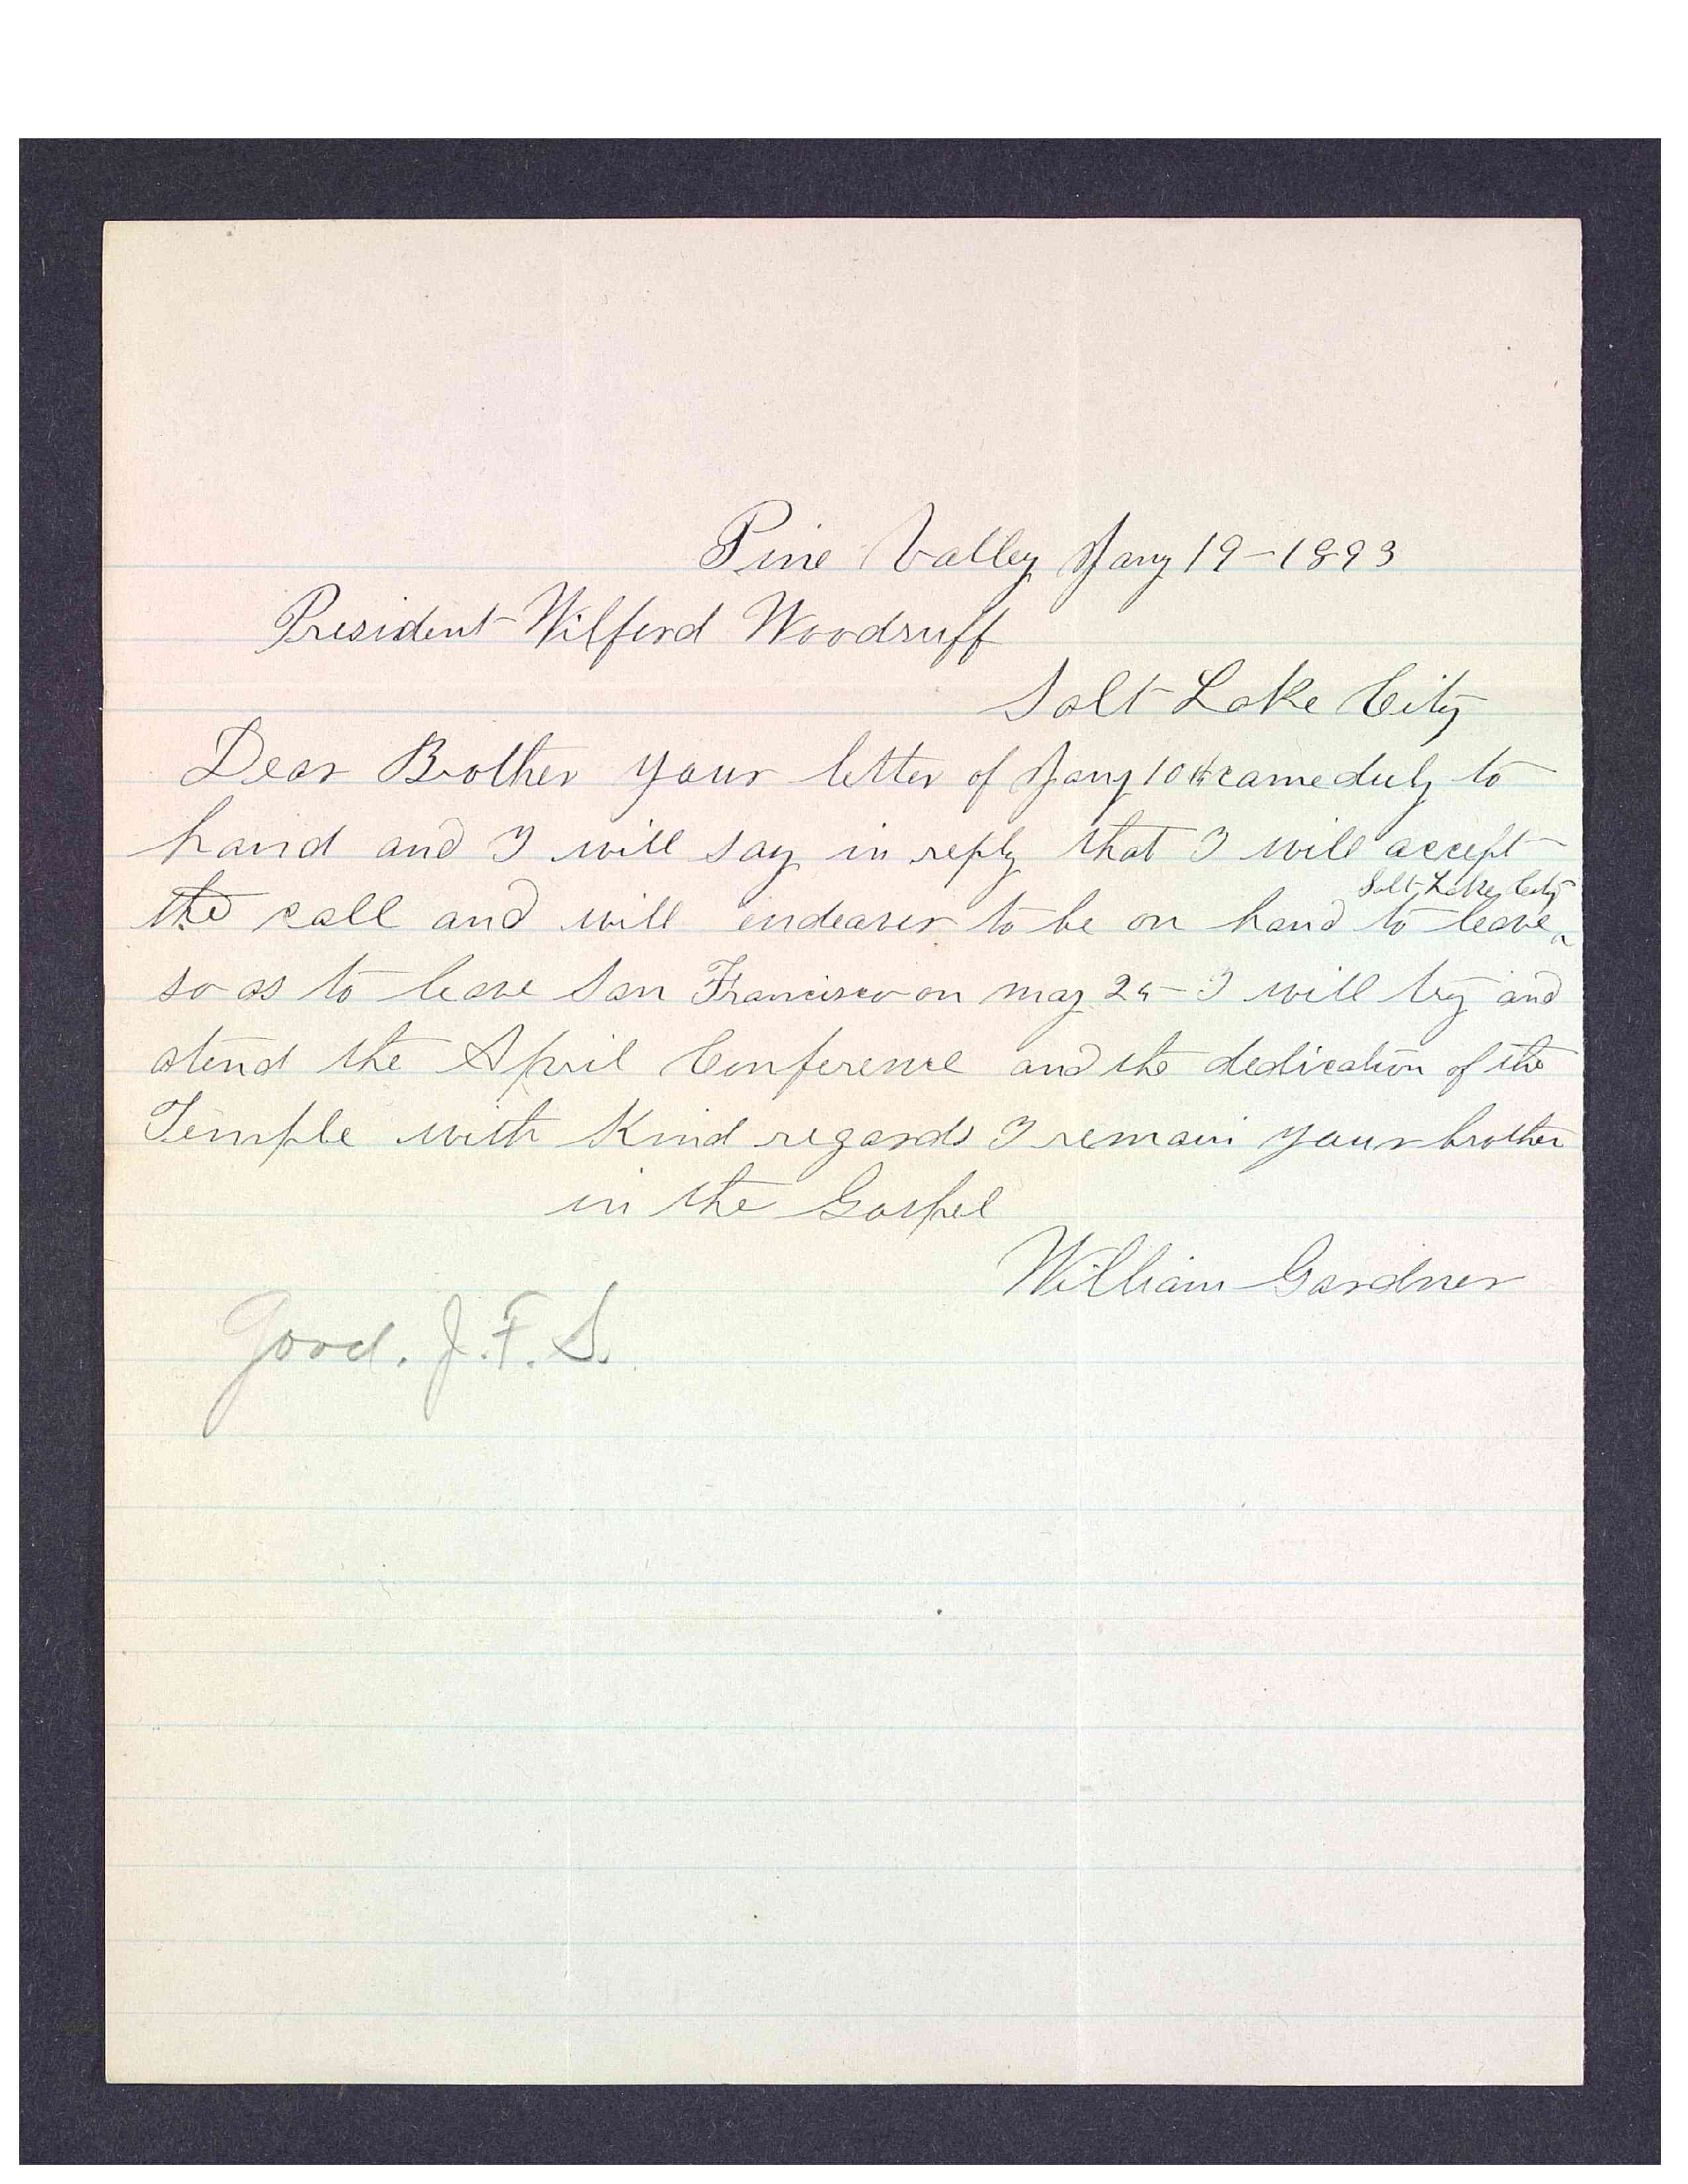 Pine Valley Jany 19-1893
President Wilford Woodruff
Salt Lake City
Dear Brother your letter of Jany 10th came duly to
hand and I will say in reply that I will accept
Salt Lake City
the call and will endeaver to be on hand to leave ^
so as to leave San Francisco on may 25- I will try and
atend the April Conference and the dedication of the
Temple with Kind regards I remain your brother
in the Gospel
William Gardner
Good. J.F.S.